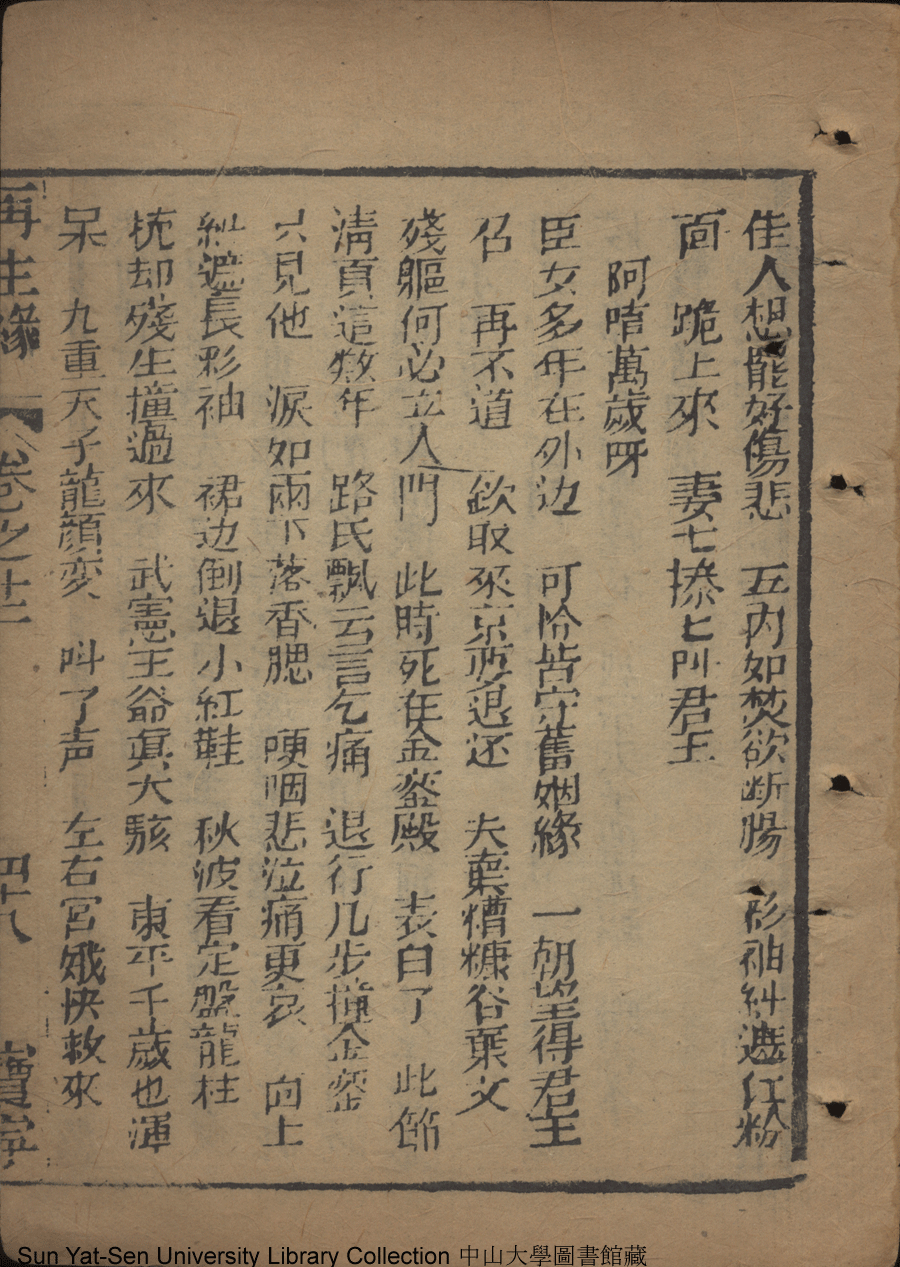 佳人想罷好傷悲　五内如焚欲断腸　衫袖紏遮红粉
面　跪上來　妻七㨆七叫君王
阿唷萬歲呀
臣女多年在外边　可怜皆守舊姻緣　一朝望得君王
召　再不道　欽取來京要退还　夫棄糟糠谷葉文
殘軀何必立人門　此時死在金銮殿　表白了　此節
清真這数年　路氏飄云言乞痛　退行几步撞金銮
只見他　淚如雨下落香腮　哽咽悲泣痛更哀　向上
紏遮長彩袖　裙边倒退小紅鞋　秋波看定盤龍柱
抗却殘生撞過來　武憲王爺眞大駭　東平千歲也渾
呆　九重天子龍顔变　叫了声　左右宮娥快救來
再生緣　卷之十二　四十八　寶寧
Sun Yat-Sen University Library Collection 中山大學圖書館藏